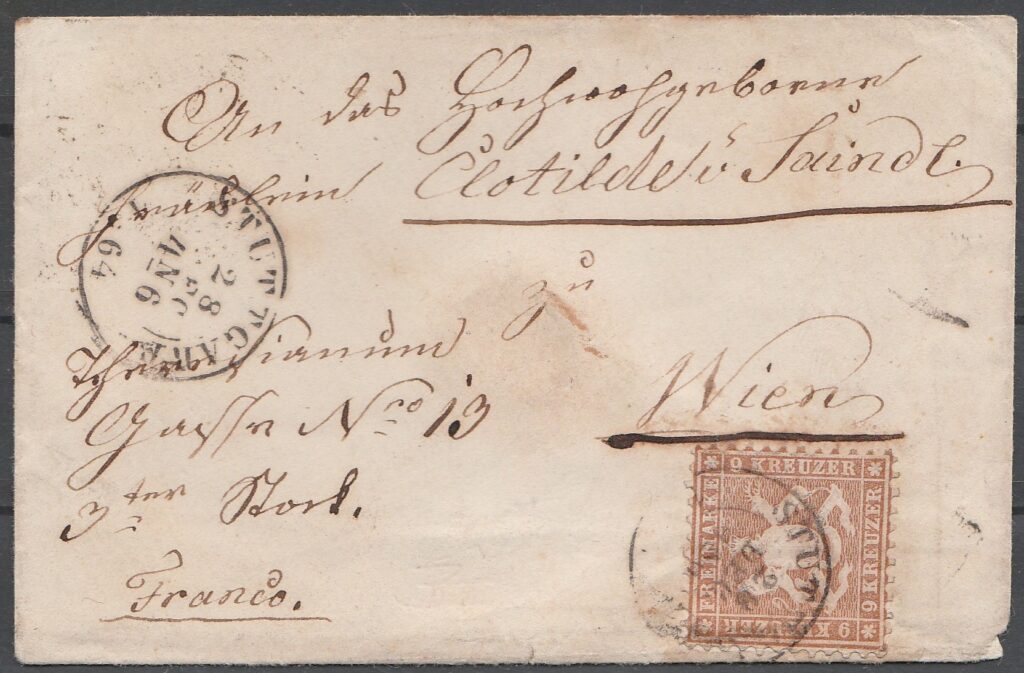 An das Hochwohgeborne
Fräulein Clotilde v Saindl.
zu
Theresianum
Gasse Nro 13
3ter Stock.
Wien
Franco.
STUTTGART
28
DEC
AN6
64
9 KREUZER
FREIMARKE
9 KREUZER
9 KREUZER
STUT
28
DEC